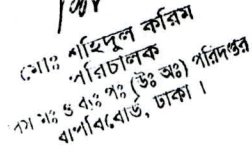 মোঃ শহিদুল করিম
পরিচালক
কাঃ মঃ ও ব্যঃ পঃ (উঃ অঃ) পরিদপ্তর
বাপবিবোর্ড, ঢাকা ।